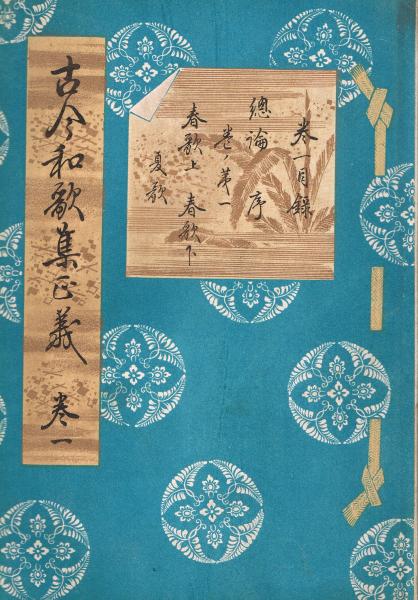 古今和歌集正義 巻一
巻一目録
總論 序
巻ノ第一
春歌上 春歌下
夏歌